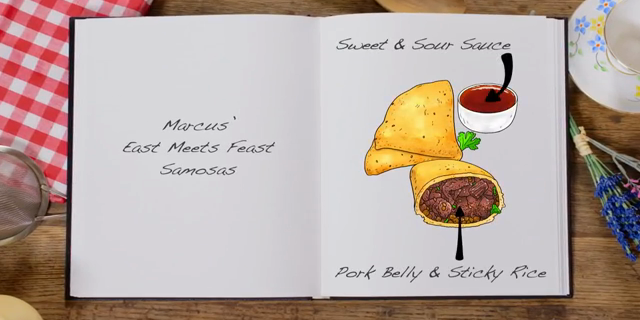 Marcus'
East Meets Feast
Samosas
Sweet & Sour Sauce
Pork Belly & Sticky Rice